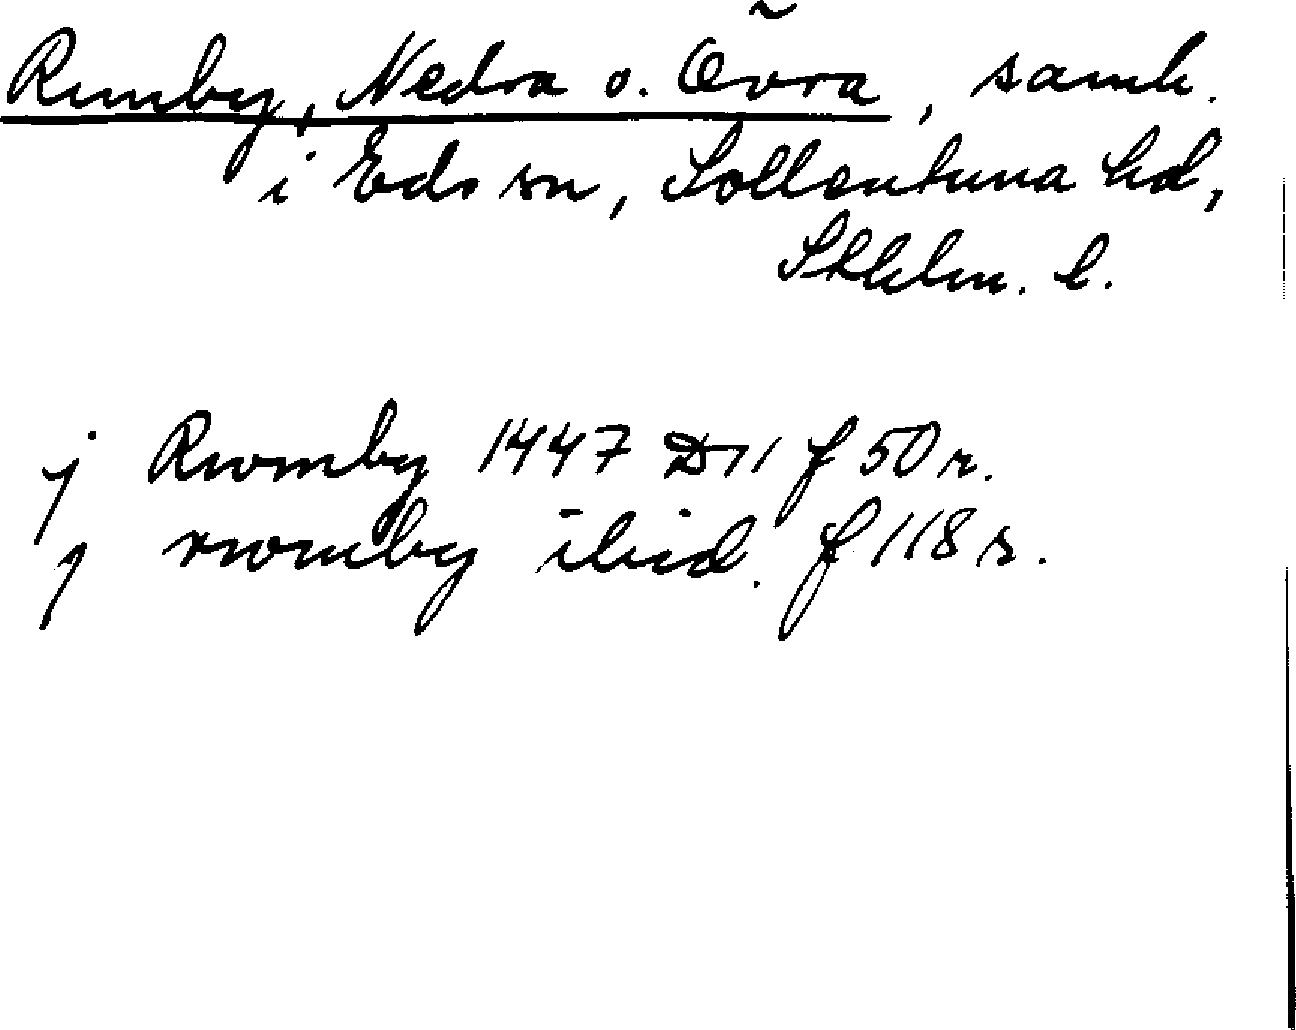 Runby, Nedra o. Övra, saml.
i Eds sn, Sollentuna hd,
Sthlm. l.
j Rwnby 1447 D11 f 50 r.
j rwnby ibid. f 118 r.